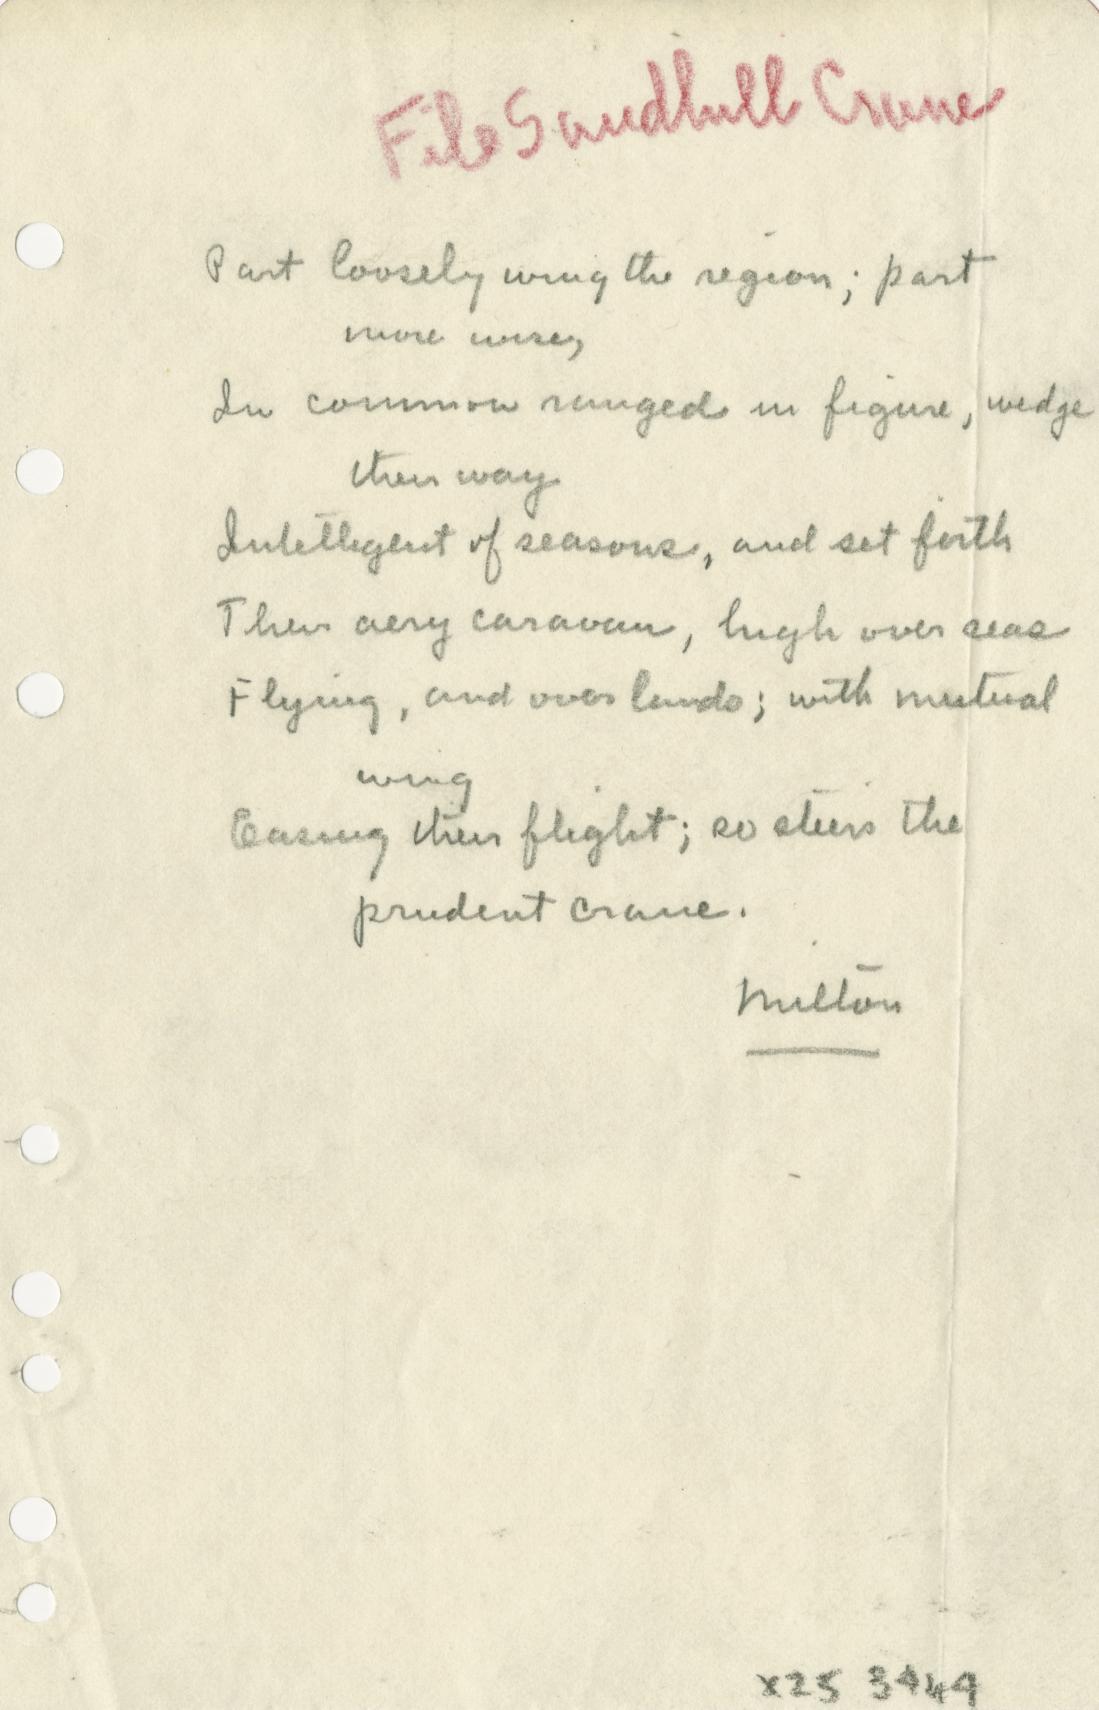 File Sandhill Crane
Part loosely wing the region; part
more wise,
In common ranged in figure, wedge
their way
Intelligent of seasons, and set forth
Their aery caravan, high over seas
Flying, and over lands; with mutual
wing
Easing their flight; so steers the
prudent crane.
Milton
x25 3449